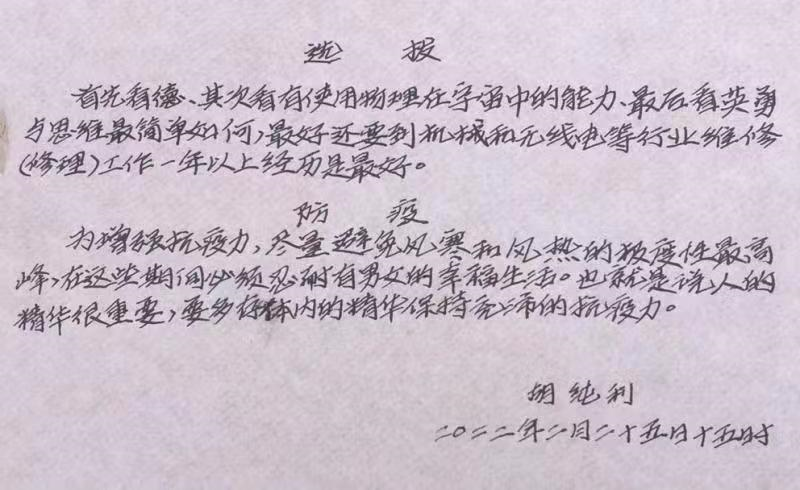 选 拔
首先看德、其次看有使用物理在宇宙中的能力、最后看英勇
与思维最简单如何,最好还要到机械和无线电等行业维修
(修理)工作一年以上经历是最好。
防 疫
为增强抗疫力,尽量避免风寒和风热的极度性最高
峰,在这些期间必须忍耐有男女的幸福生活。也就是说人的
精华很重要,要多存体内的精华保持充沛的抗疫力。
胡纯利
二〇二二年二月二十五日十五时